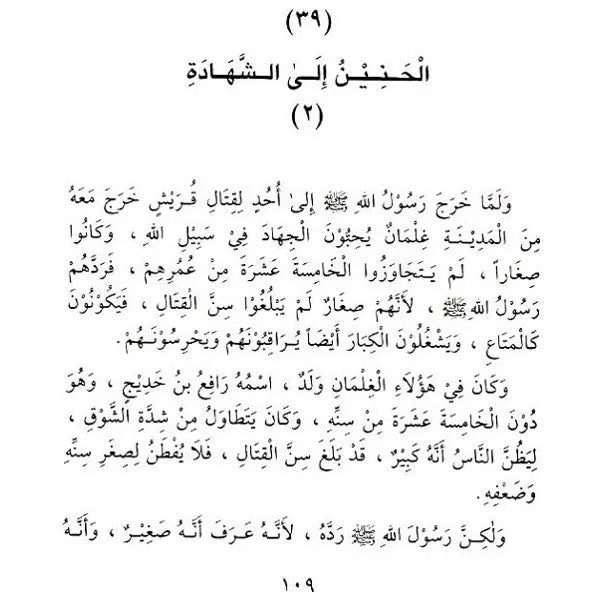 (٣٩)
الْحَنِيْنُ إِلَىٰ الشَّهَادَةِ
(٢)
وَلَمَّا خَرَجَ رَسُوْلُ اللهِ ﷺ إِلىٰ أُحُدٍ لِقِتَالِ قُرَيْشٍ خَرَجَ مَعَهُ
مِنَ الْمَدِيْنَةِ غِلْمَانٌ يُحِبُّوْنَ الْجِهَادَ فِيْ سَبِيْلِ اللهِ ، وَكَانُوا
صِغَاراً ، لَمْ يَتَجَاوَزُوا الْخَامِسَةَ عَشْرَةَ مِنْ عُمُرِهِمْ ، فَرَدَّهُمْ
رَسُوْلُ اللهِ ﷺ ، لأَنَّهُمْ صِغَارٌ لَمْ يَبْلُغُوْا سِنَّ الْقِتَالِ ، فَيَكُوْنُوْنَ
كَالْمَتَاعِ ، وَيَشْغُلُوْنَ الْكِبَارَ أَيْضاً يُرَاقِبُوْنَهُمْ وَيَحْرِسُوْنَهُمْ .
وَكَانَ فِيْ هَؤُلَاءِ الْغِلْمَانِ وَلَدٌ ، اسْمُهُ رَافِعُ بنُ خَدِيْجٍ ، وَهُوَ
دُوْنَ الْخَامِسَةَ عَشْرَةَ مِنْ سِنِّهِ ، وَكَانَ يَتَطَاوَلُ مِنْ شِدَّةِ الشَّوْقِ ،
لِيَظُنَّ النَّاسُ أَنَّهُ كَبِيْرٌ ، قَدْ بَلَغَ سِنَّ الْقِتَالِ ، فَلَا يُفْطَنُ لِصِغَرِ سِنِّهِ
وَضَعْفِهِ .
وَلٰكِنَّ رَسُوْلَ اللهِ ﷺ رَدَّهُ ، لأَنَّهُ عَرَفَ أَنَّهُ صَغِيْرٌ ، وَأَنَّهُ
١٠٩